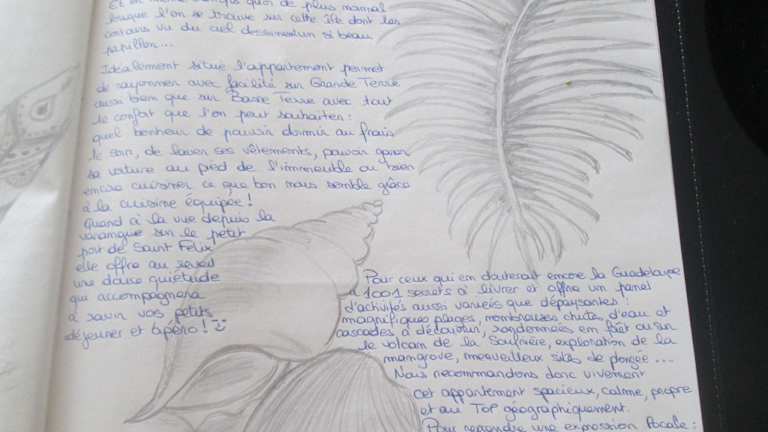 Et en même temps quoi de plus normal
lorsque l'on se trouve sur cette île dont les
contours vu du ciel dessinent un si beau
papillon...
Idéalement situé l'appartement permet
de rayonner avec facilité sur Grande Terre
aussi bien que sur Basse Terre avec tout
le confort que l'on peut souhaiter :
quel bonheur de pouvoir dormir au frais
le soir, de laver ses vêtements, pouvoir garer
sa voiture au pied de l'immeuble ou bien
encore cuisiner ce que bon nous semble grâce
à la cuisine équipée !
Quand à la vue depuis la
varangue sur le petit
port de Saint Félix,
elle offre au réveil
une douce quiétude
qui accompagnera
à ravir vos petits
déjeuner et apéro !
Pour ceux qui en douterait encore la Guadeloupe
a 1001 secrets à livrer et offre un panel
d'activités aussi variées que dépaysantes !
magnifiques plages, nombreuses chutes d'eau et
cascades à découvrir, randonnées en forêt ou sur
le volcan de la Soufrière, exploration de la
mangrove, merveilleux sites de plongée ...
Nous recommandons donc vivement
cet appartement spacieux, calme, propre
et au TOP géographiquement.
Pour reprendre une expression locale :